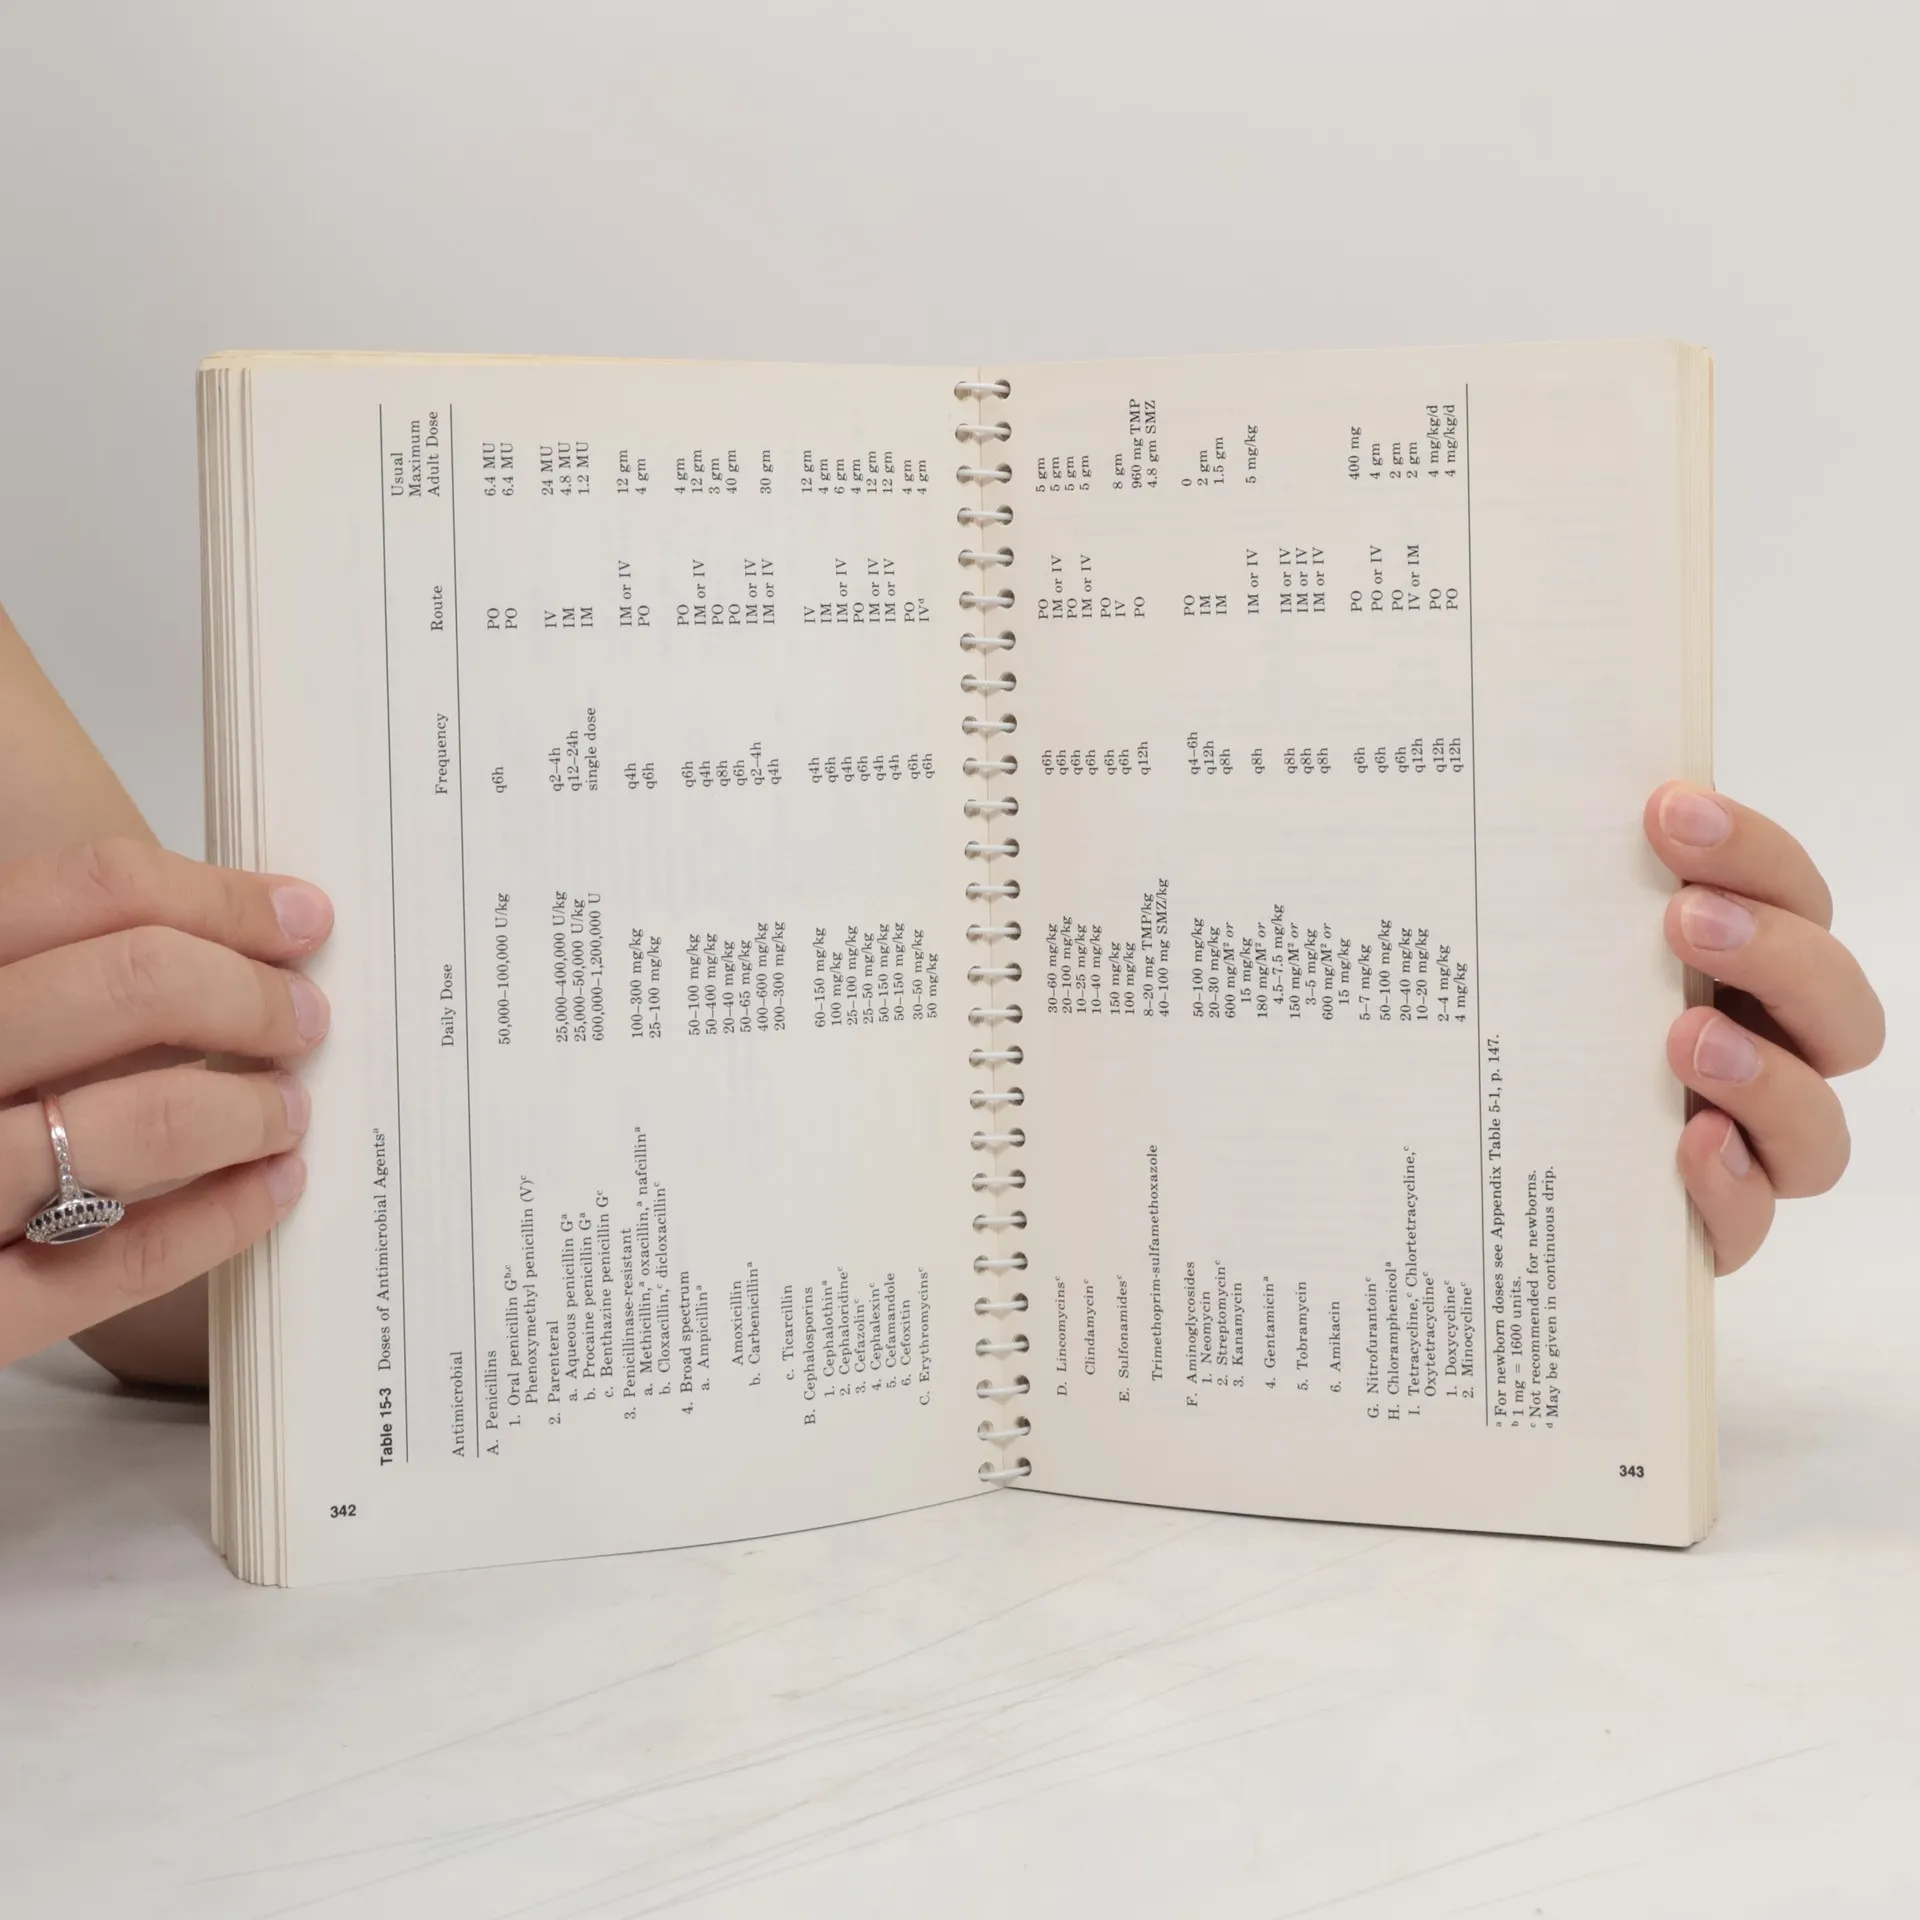 342
Table 15-3 Doses of Antimicrobial Agentsᵃ
Usual
Maximum
Antimicrobial Daily Dose Frequency Route Adult Dose
A. Penicillins
1. Oral penicillin Gᵇ,ᶜ 50,000–100,000 U/kg q6h PO 6.4 MU
Phenoxymethyl penicillin (V)ᶜ PO 6.4 MU
2. Parenteral
a. Aqueous penicillin Gᵃ 25,000–400,000 U/kg q2–4h IV 24 MU
b. Procaine penicillin Gᵃ 25,000–50,000 U/kg q12–24h IM 4.8 MU
c. Benthazine penicillin Gᶜ 600,000–1,200,000 U single dose IM 1.2 MU
3. Penicillinase-resistant
a. Methicillin,ᵃ oxacillin,ᵃ nafcillinᵃ 100–300 mg/kg q4h IM or IV 12 gm
b. Cloxacillin,ᶜ dicloxacillinᶜ 25–100 mg/kg q6h PO 4 gm
4. Broad spectrum
a. Ampicillinᵃ 50–100 mg/kg q6h PO 4 gm
50–400 mg/kg q4h IM or IV 12 gm
Amoxicillin 20–40 mg/kg q8h PO 3 gm
b. Carbenicillinᵃ 50–65 mg/kg q6h PO 40 gm
400–600 mg/kg q2–4h IM or IV
c. Ticarcillin 200–300 mg/kg q4h IM or IV 30 gm
B. Cephalosporins
1. Cephalothinᵃ 60–150 mg/kg q4h IV 12 gm
2. Cephaloridineᶜ 100 mg/kg q6h IM 4 gm
3. Cefazolinᶜ 25–100 mg/kg q4h IM or IV 6 gm
4. Cephalexinᶜ 25–50 mg/kg q6h PO 4 gm
5. Cefamandole 50–150 mg/kg q4h IM or IV 12 gm
6. Cefoxitin 50–150 mg/kg q4h IM or IV 12 gm
C. Erythromycinsᶜ 30–50 mg/kg q6h PO 4 gm
50 mg/kg q6h IVᵈ 4 gm
D. Lincomycinsᶜ 30–60 mg/kg q6h PO 5 gm
20–100 mg/kg q6h IM or IV 5 gm
Clindamycinᶜ 10–25 mg/kg q6h PO 5 gm
10–40 mg/kg q6h IM or IV 5 gm
E. Sulfonamidesᶜ 150 mg/kg q6h PO
100 mg/kg q6h IV 8 gm
Trimethoprim-sulfamethoxazole 8–20 mg TMP/kg q12h PO 960 mg TMP
40–100 mg SMZ/kg 4.8 gm SMZ
F. Aminoglycosides
1. Neomycin 50–100 mg/kg q4–6h PO 0
2. Streptomycinᶜ 20–30 mg/kg q12h IM 2 gm
3. Kanamycin 600 mg/M² or q8h IM 1.5 gm
15 mg/kg
4. Gentamicinᵃ 180 mg/M² or q8h IM or IV 5 mg/kg
4.5–7.5 mg/kg
5. Tobramycin 150 mg/M² or q8h IM or IV
3–5 mg/kg q8h IM or IV
6. Amikacin 600 mg/M² or q8h IM or IV
15 mg/kg
G. Nitrofurantoinᶜ 5–7 mg/kg q6h PO 400 mg
H. Chloramphenicolᵃ 50–100 mg/kg q6h PO or IV 4 gm
I. Tetracycline,ᶜ Chlortetracycline,ᶜ 20–40 mg/kg q6h PO 2 gm
Oxytetracyclineᶜ 10–20 mg/kg q12h IV or IM 2 gm
1. Doxycyclineᶜ 2–4 mg/kg q12h PO 4 mg/kg/d
2. Minocyclineᶜ 4 mg/kg q12h PO 4 mg/kg/d
ᵃ For newborn doses see Appendix Table 5-1, p. 147.
ᵇ 1 mg = 1600 units.
ᶜ Not recommended for newborns.
ᵈ May be given in continuous drip.
343